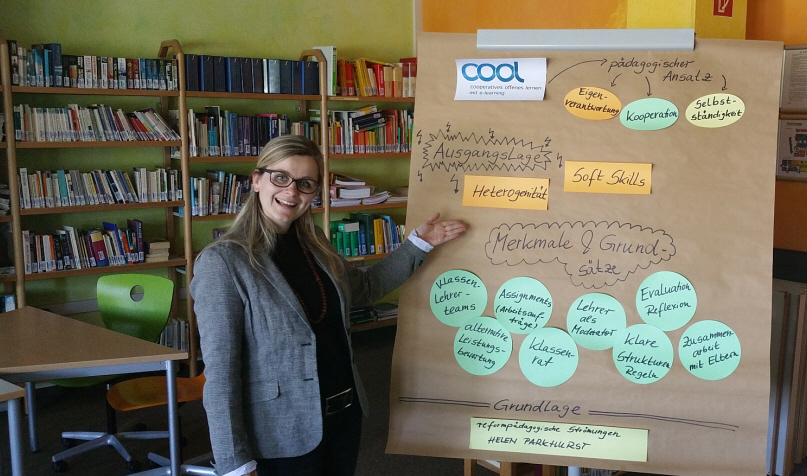 COOL
cooperatives offenes lernen
mit e-learning
pädagogischer
Ansatz
Eigen-
verantwortung
Kooperation
Selbst-
ständigkeit
Ausgangslage
Heterogenität
Soft Skills
Merkmale & Grund-
sätze
Klassen-
Lehrer-
teams
Assignments
(Arbeitsauf-
träge)
Lehrer
als
Moderator
Evaluation
Reflexion
alternative
Leistungs-
beurteilung
Klassen-
rat
klare
Strukturen
Regeln
Zusammen-
arbeit
mit Eltern
Grundlage
reformpädagogische Strömungen
HELEN PARKHURST